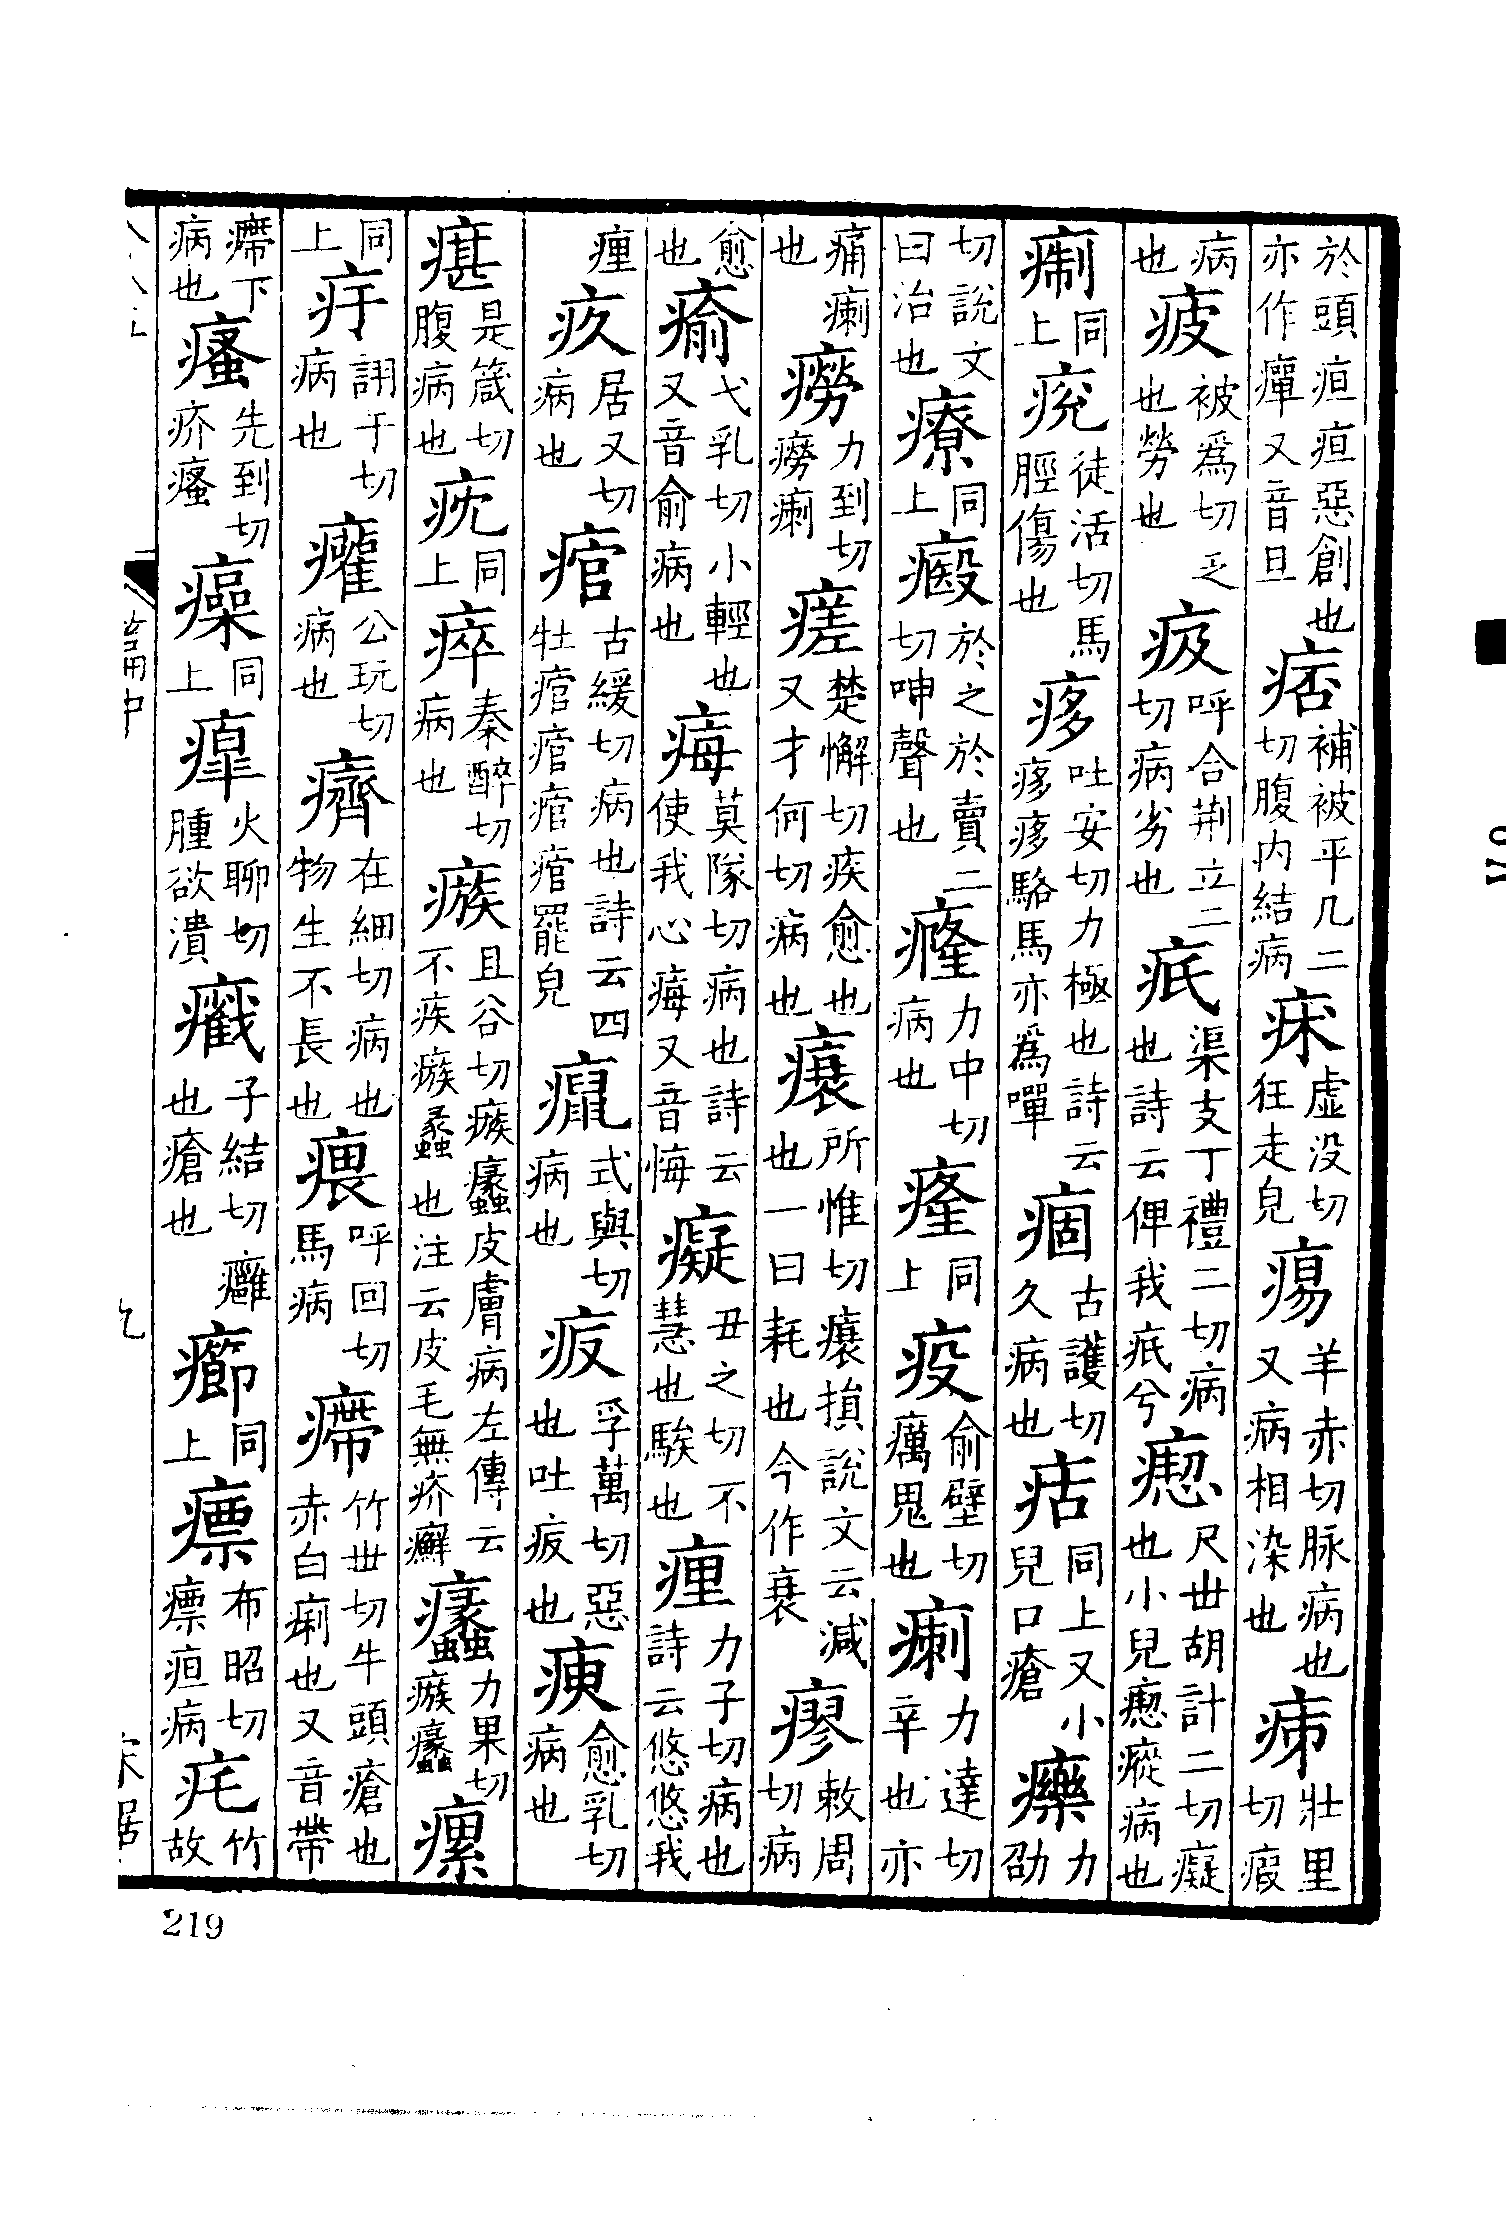 於頭疸疸惡創也亦作癉又音旦 痞 補被平几二切腹内結病 虛没切狂走皃 痬 羊赤切脉病也又病相染也 壯里切瘕
病也 疲 被爲切乏也勞也 呼合荆立二切病劣也 疧 渠支丁禮二切病也詩云俾我疧兮 瘛 尺丗胡計二切癡也小兒瘛瘲病也
痸 同上 痥 徒活切馬脛傷也 痑 吐安切力極也詩云痑痑駱馬亦爲嘽 痼 古護切久病也 同上又小兒口瘡 力劭
切說文曰治也 療 同上 於之於賣二切呻聲也 癃 力中切病也 同上 疫 俞壁切癘鬼也 瘌 力達切辛也亦
痛瘌也 癆 力到切癆瘌 瘥 楚懈切疾愈也又才何切病也 所惟切損說文云減也一曰耗也今作衰 瘳 敕周切病
愈也 瘉 弋乳切小輕也又音俞病也 痗 莫隊切病也詩云使我心痗又音悔 癡 丑之切不慧也騃也 力子切病也詩云悠悠我
疚 居又切病也 痯 古緩切病也詩云四牡痯痯痯痯罷皃 癙 式與切病也 孚萬切惡也吐也 瘐 愈乳切病也
是箴切腹病也 同上 瘁 秦醉切病也 瘯 且谷切瘯皮膚病左傳云不疾瘯蠡也注云皮毛無疥癬 力果切瘯 瘰
同上 詡于切病也 公玩切病也 癠 在細切病也物生不長也 呼回切馬病 竹丗切牛頭瘡也赤白痢也又音帶
下病也 瘙 先到切疥瘙 同上 火聊切腫欲潰 子結切癰也瘡也 癤 同上 瘭 布昭切瘭疽病 竹故
219